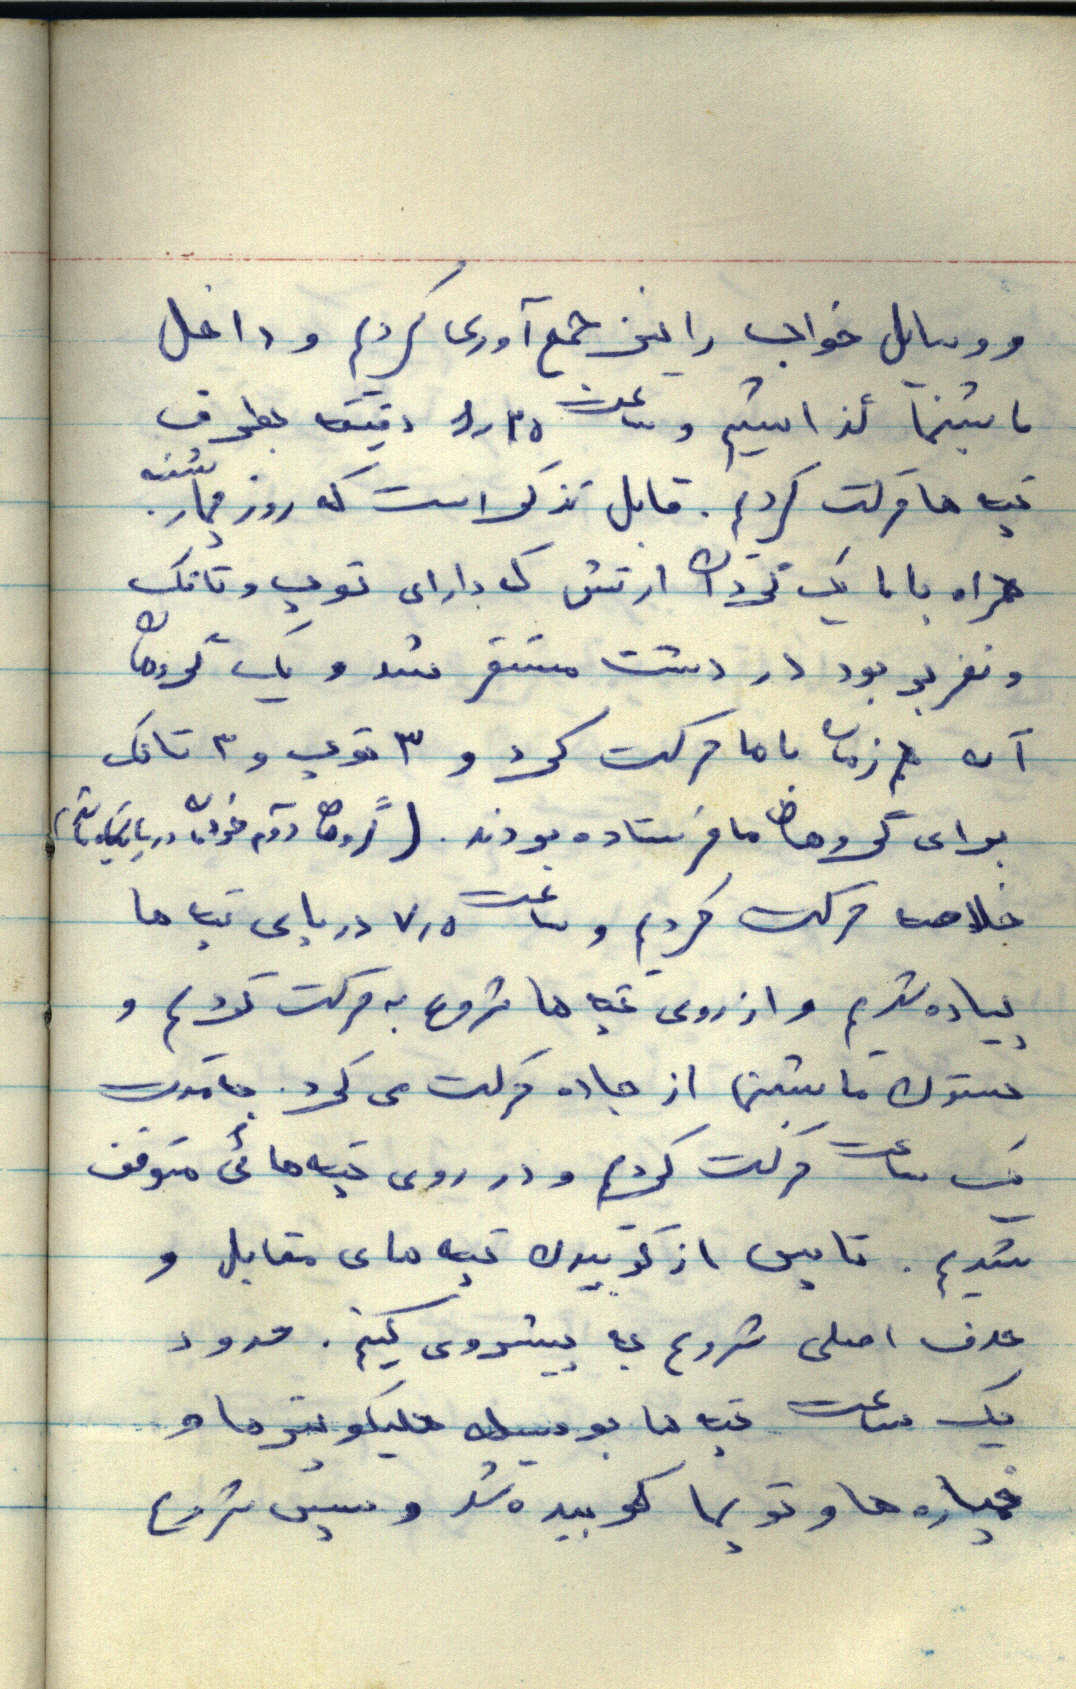 و وسایل خواب را نیز جمع آوری کردیم و داخل
ماشینها گذاشتیم و ساعت دقیقه بطرف
تپه ها حرکت کردیم. قابل تذکر است که روز چهارشنبه
همراه با ما یک گردان ارتش که دارای توپ و تانک
و نفربر بود در دشت مستقر شد و یک گروهان
آن هم زمان با ما حرکت کرد و ۳ توپ و ۳ تانک
برای گروهان ما فرستاده بودند. (گروهان دوم خودمان در پایگاه ماند)
خلاصه حرکت کردیم و ساعت ۷٫۵ در پای تپه ها
پیاده شدیم و از روی تپه ها شروع به حرکت کردیم و
ستون ماشینها از جاده حرکت می کرد. بمدت
یک ساعت حرکت کردیم و در روی تپه هائی متوقف
شدیم. تا پس از کوبیدن تپه های مقابل و
هدف اصلی شروع به پیشروی کنیم. حدود
یک ساعت تپه ها بوسیله هلیکوپترها و
خمپاره ها و توپها کوبیده شد و سپس شروع